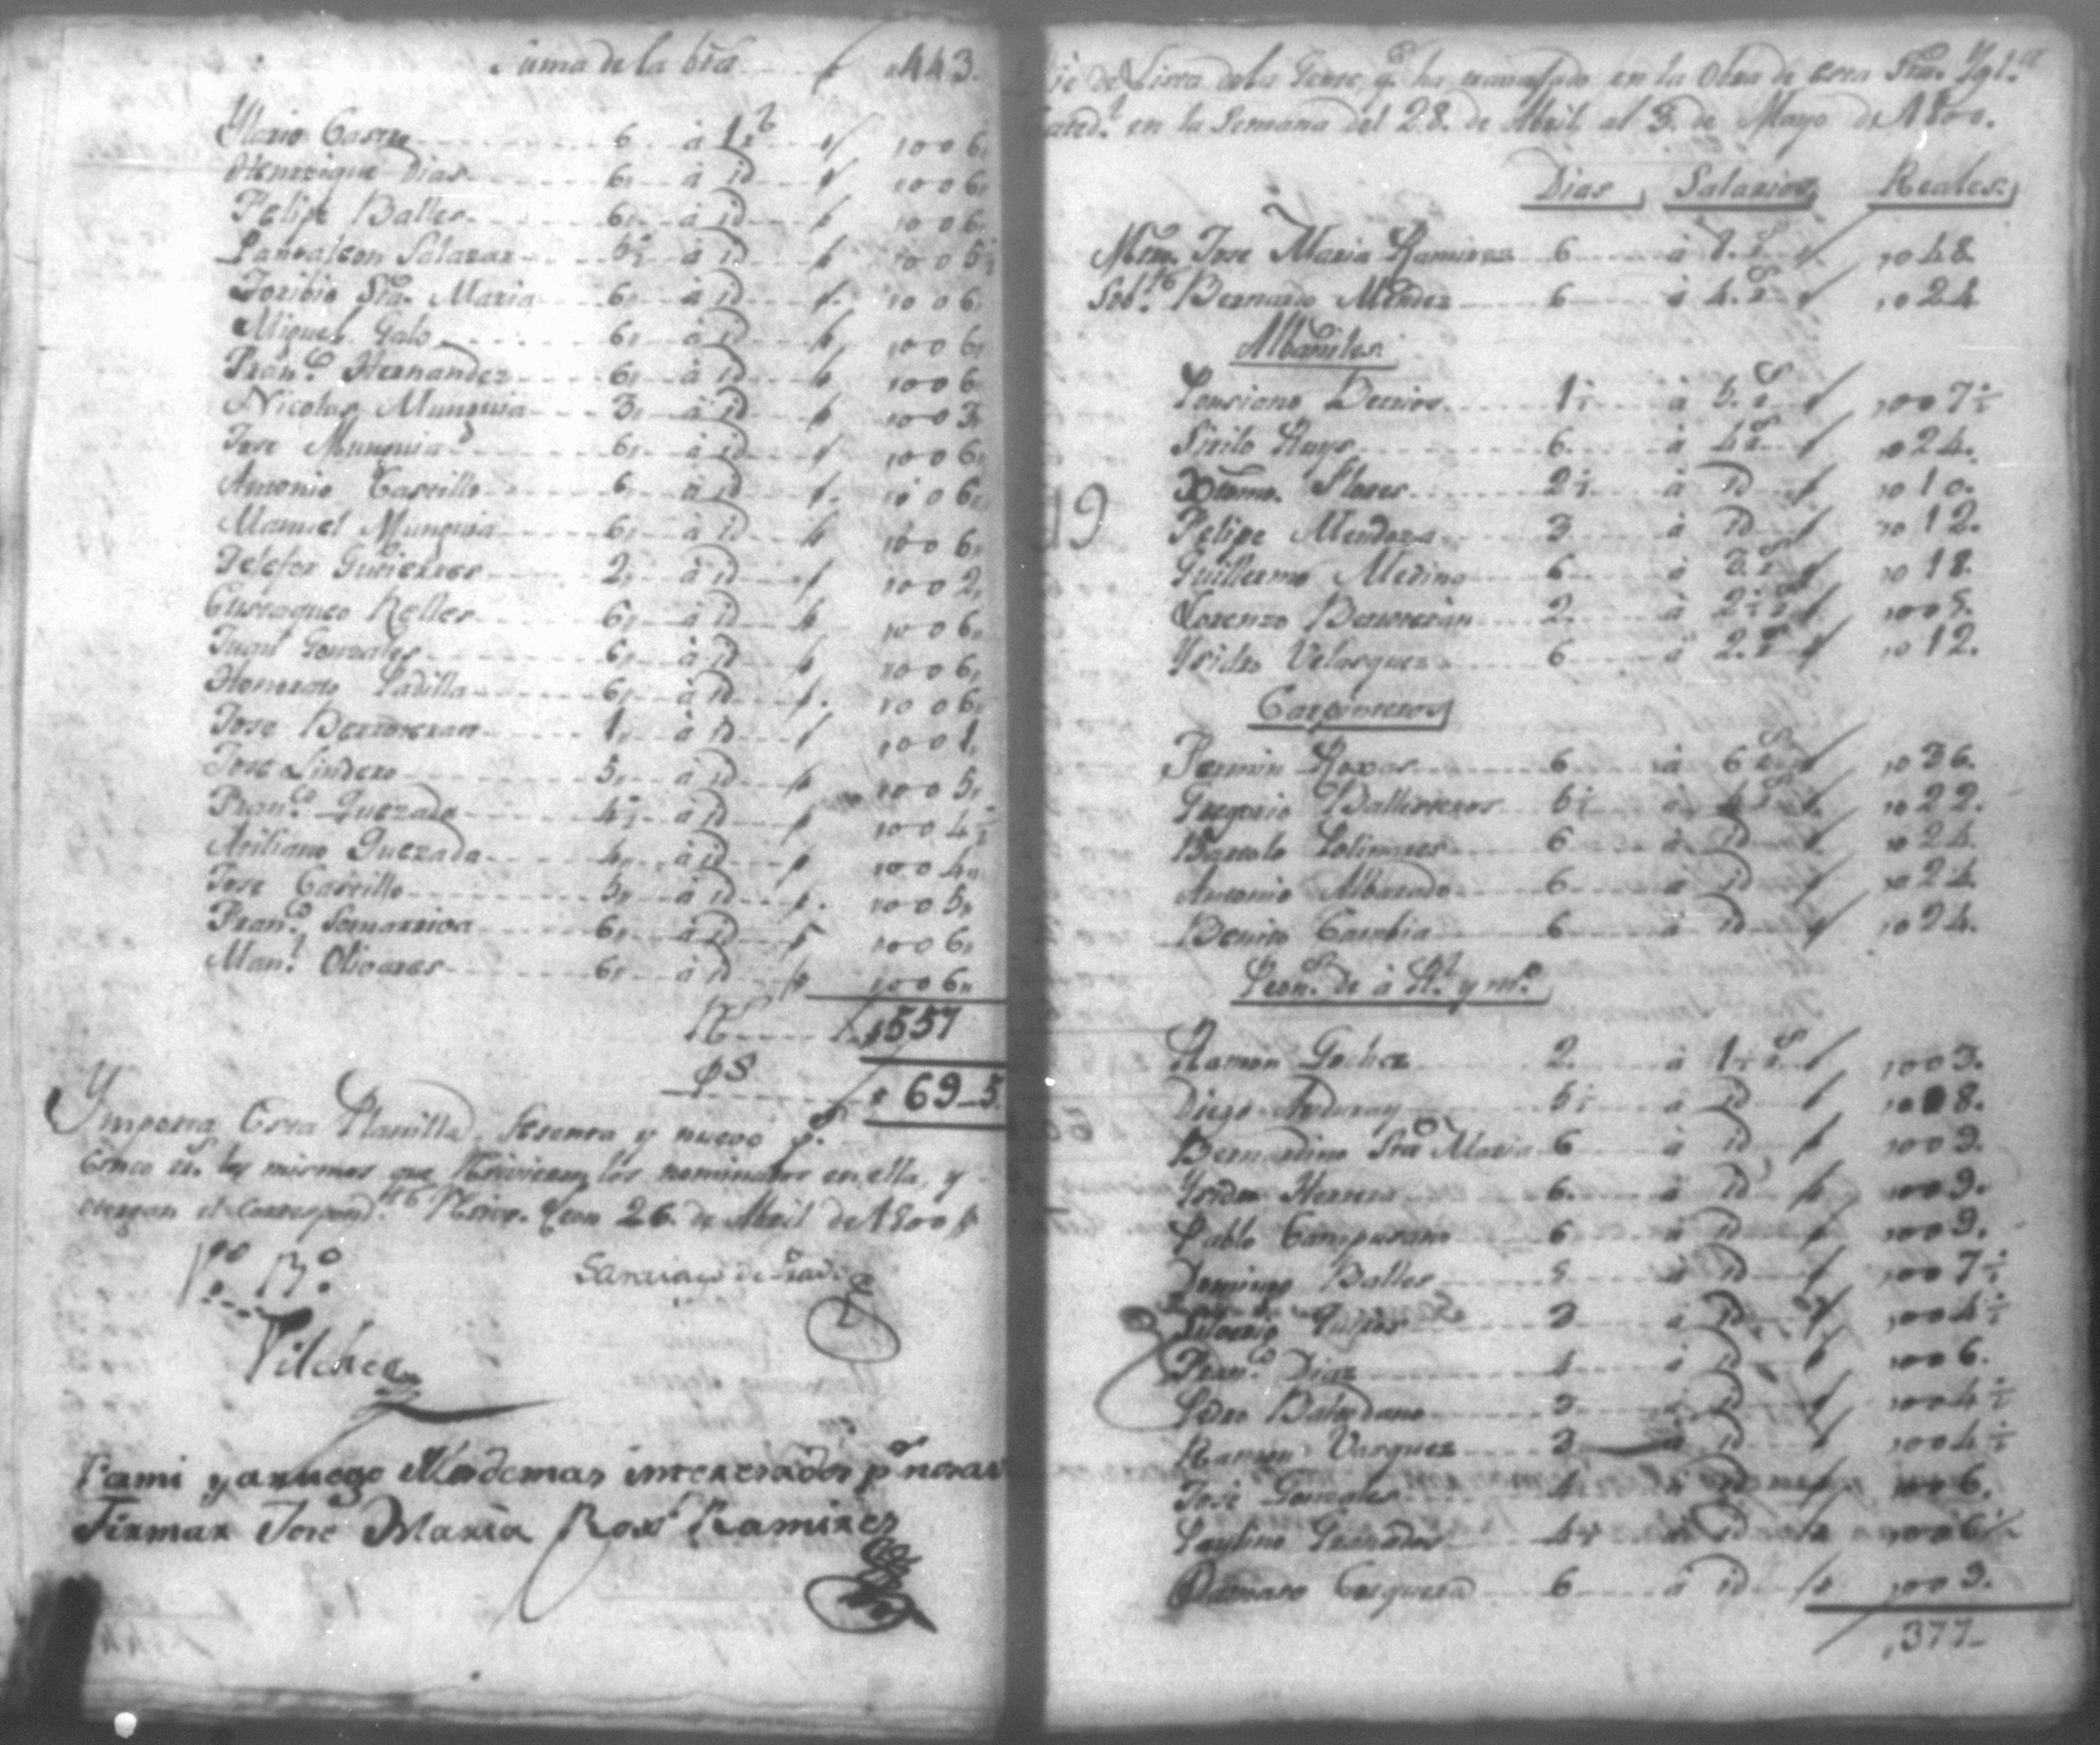 Suma de la bta 443.
Ylario Castro 6 à 1 r.s 006
Henrrique Dias 6 à id 006
Felipe Balles 6 à id 006
Pantaleon Salazar 5½ à id 005½
Toribio Sta. Maria 6 à id 006
Miguel Galo 6 à id 006
Fran.co Hernandez 6 à id 006
Nicolas Munguia 3 à id 003
Jose Munguia 6 à id 006
Antonio Castillo 6 à id 006
Manuel Munguia 6 à id 006
Telefor Gutierres 2 à id 002
Eustaqueo Relles 6 à id 006
Juan Gonzales 6 à id 006
Honorato Padilla 6 à id 006
Jose Berroteran 1 à id 001
Jose Lindero 5 à id 005
Fran.co Quezada 4½ à id 004½
Quezada 4 à id 004
Jose Castillo 5 à id 005
Fran.co Somarriva 6 à id 006
Man.l Olivares 6 à id 006
R.s 557
p.s 69_5
Ymporta Esta Planilla Sesenta y nueve p.s
Cinco r.s los mismos que Resivieron los nominados en ella, y
otorgan el correspond.te Resivo. Leon 26. de Abril de 1800
V.o B.o
Santiago de
Vilches
Pami y aruego de los demas interesados p.r no sav
Firmar Jose Maria Ramires
de Lista de la Gente, q.e ha travajado en la Obra de esta Sta. Ygl.a
Cated.l en la Semana del 28. de Abril al 3. de Mayo de 1800.
Dias Salarios Reales
Mtro. Jose Maria Ramires 6 à 8. r.s 048
Sob.te Bernardo Mendez 6 à 4. r.s 024
Albañiles.
Ponsiano Berrios 1½ à 5. r.s 007½
Sirilo Reyes 6. à 4 r.s 024.
19
Flores 2½ à id 010.
Felipe Mendoza 3 à id 012.
Guillermo Medina 6 à 3. r.s 018.
Lorenzo Berroteran 2 à 2½ r.s 005.
Ysidro Velasquez 6 à 2. r.s 012.
Carpinteros
Fermin Roxas 6 à 6 r.s 036.
Gregorio Ballesteros 5½ à 4 r.s 022.
Bartolo Colinares 6 à id 024.
Antonio Albarado 6 à id 024.
Benito Carabia 6 à id 024.
Peon.s de à R.l y m.o
Ramon Gochez 2. à 1½ r.s 003.
Diego Anduray 5½ à id 008.
Bernardino Sta Maria 6 à id 009.
Ysidro Herrera 6. à id 009.
Pablo Campusano 6 à id 009.
Domingo Balles 5 à id 007½
Silverio 3 à id 004½
Fran.co Diaz 4 à id 006.
Pedro Baltodano 3 à id 004½
Ramon Vasquez 3 à id 004½
Jose Gonzales 4 à id 006.
Paulino Granados 4½ à id 006½
Damaso Cerquera 6 à id 009.
377_